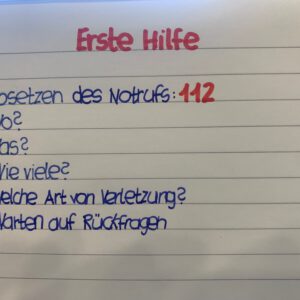 Erste Hilfe
bsetzen des Notrufs: 112
Wo?
Was?
Wie viele?
Welche Art von Verletzung?
Warten auf Rückfragen